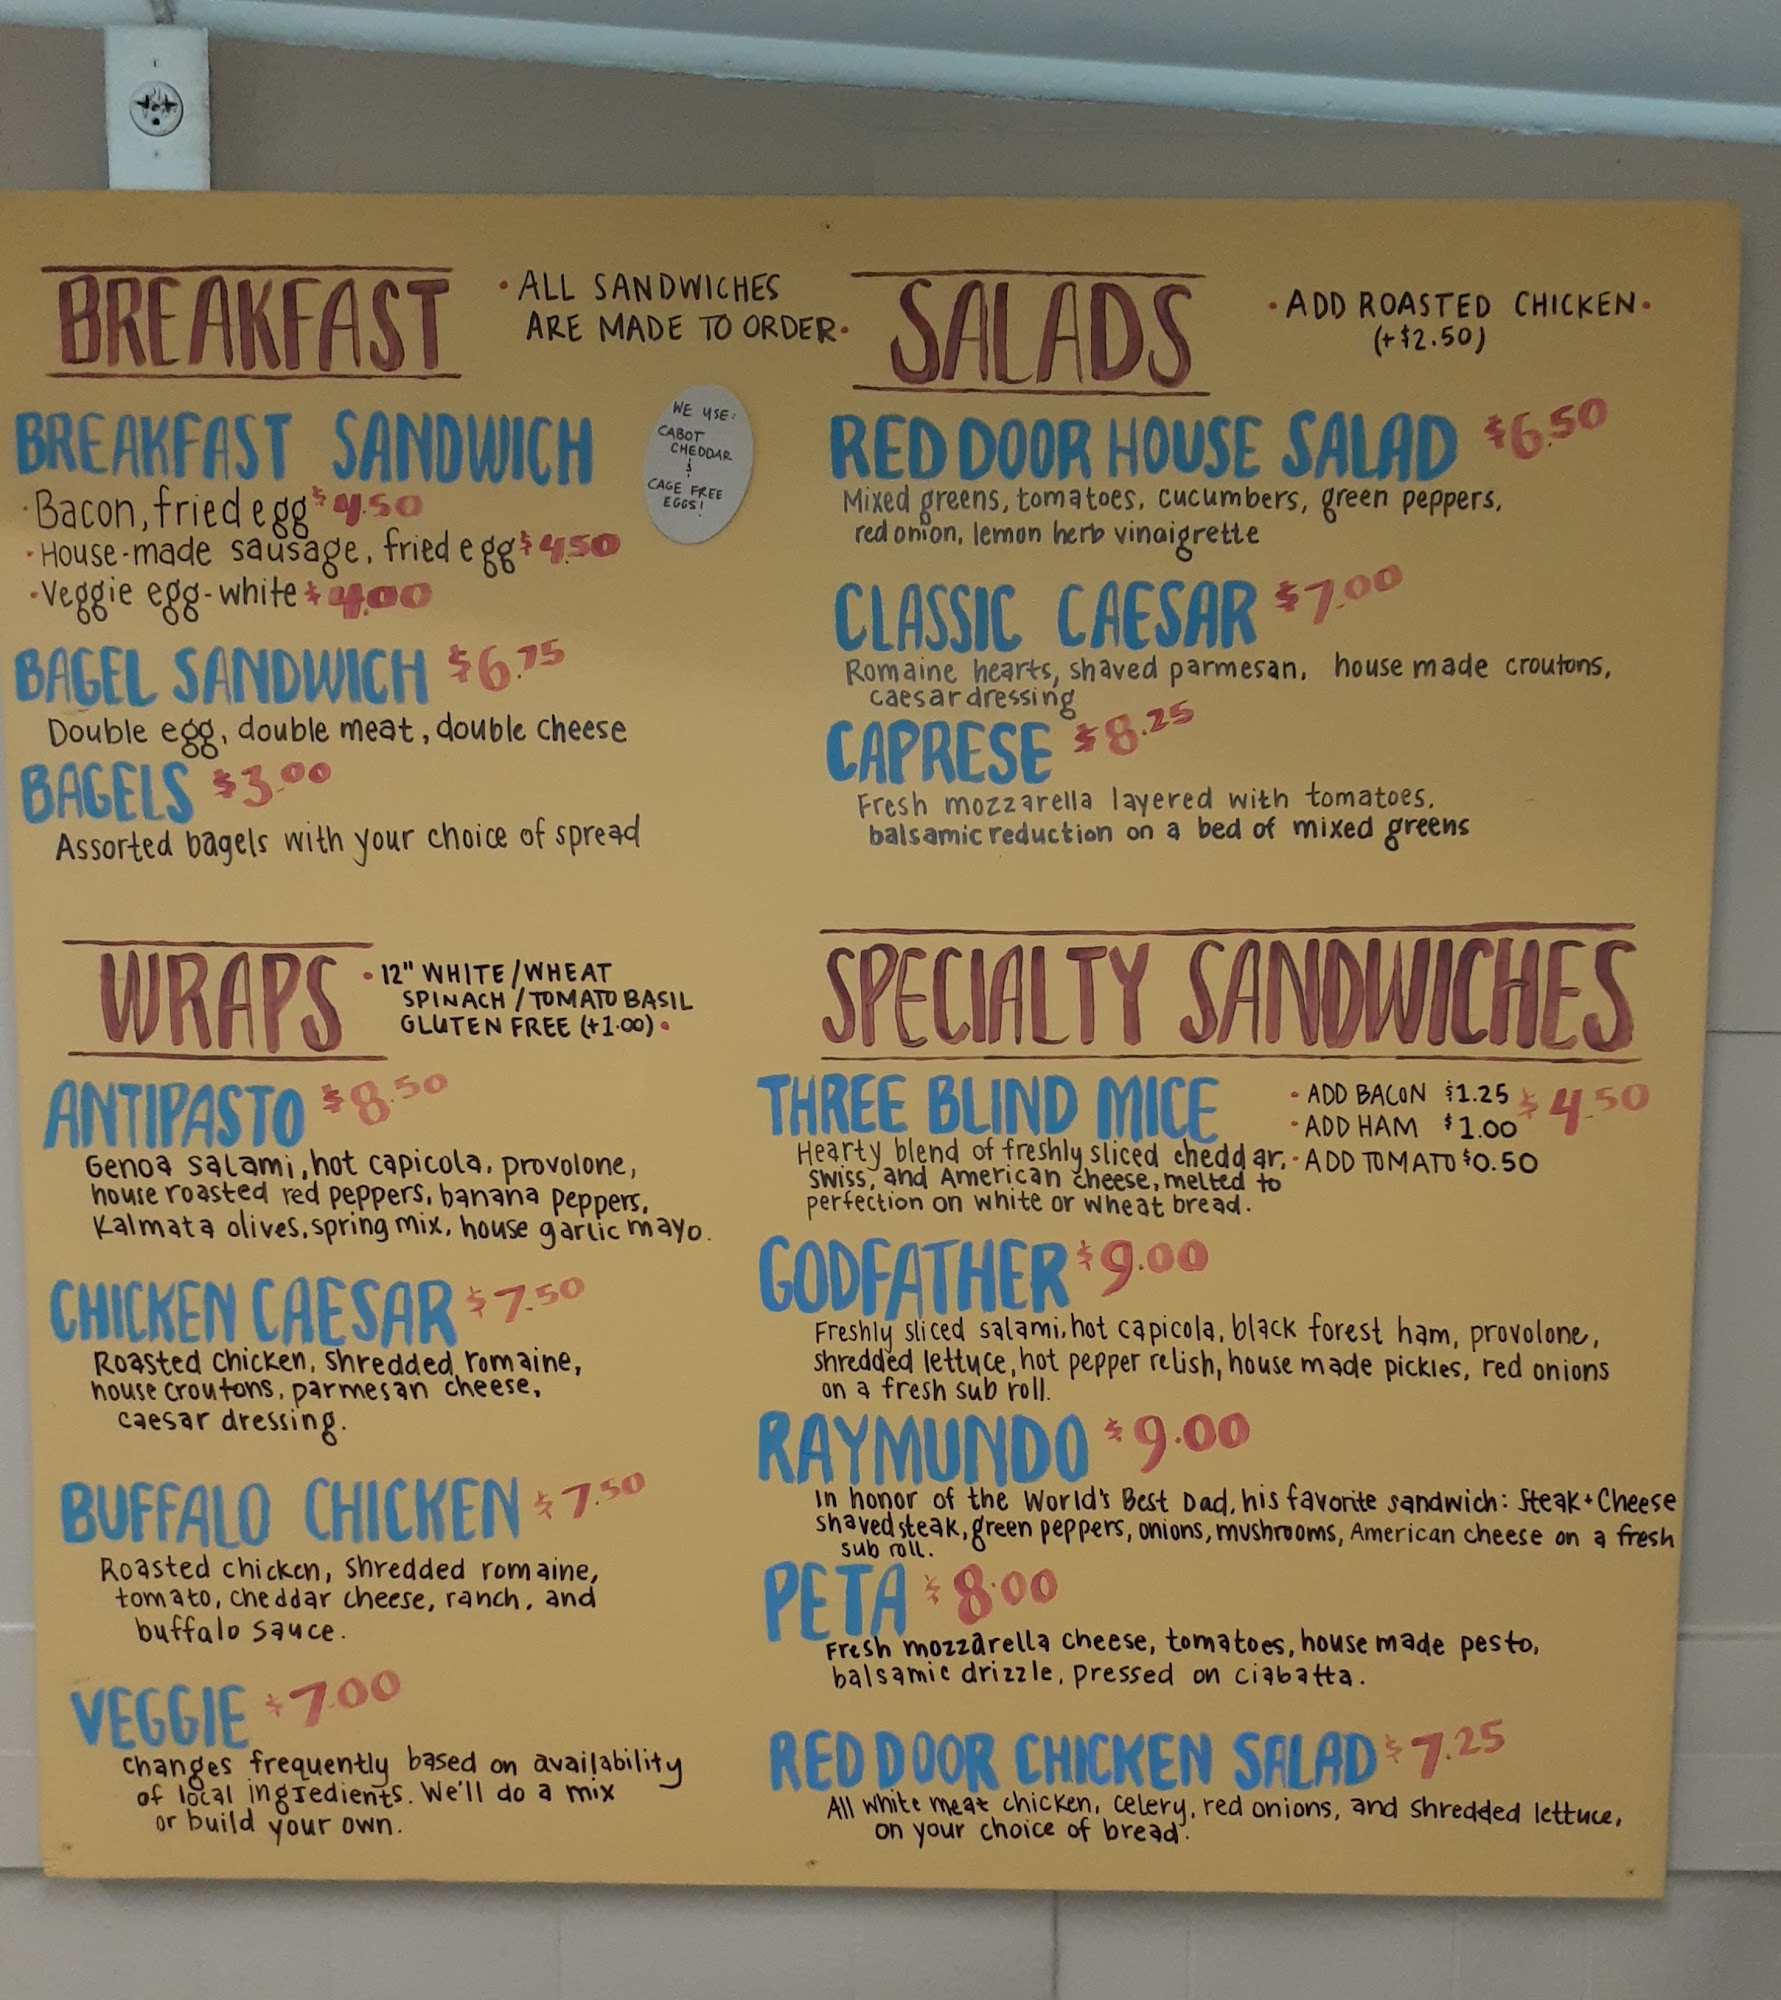 BREAKFAST
• ALL SANDWICHES
ARE MADE TO ORDER •
BREAKFAST SANDWICH
WE USE:
CABOT
CHEDDAR
&
CAGE FREE
EGGS!
· Bacon, fried egg $4.50
· House-made sausage, fried egg $4.50
· Veggie egg-white $4.00
BAGEL SANDWICH $6.75
Double egg, double meat, double cheese
BAGELS $3.00
Assorted bagels with your choice of spread
SALADS
• ADD ROASTED CHICKEN •
(+$2.50)
RED DOOR HOUSE SALAD $6.50
Mixed greens, tomatoes, cucumbers, green peppers,
red onion, lemon herb vinaigrette
CLASSIC CAESAR $7.00
Romaine hearts, shaved parmesan, house made croutons,
caesar dressing
CAPRESE $8.25
Fresh mozzarella layered with tomatoes,
balsamic reduction on a bed of mixed greens
WRAPS
• 12" WHITE/WHEAT
SPINACH/TOMATO BASIL
GLUTEN FREE (+1.00) •
ANTIPASTO $8.50
Genoa salami, hot capicola, provolone,
house roasted red peppers, banana peppers,
Kalmata olives, spring mix, house garlic mayo.
CHICKEN CAESAR $7.50
Roasted chicken, shredded romaine,
house croutons, parmesan cheese,
caesar dressing.
BUFFALO CHICKEN $7.50
Roasted chicken, shredded romaine,
tomato, cheddar cheese, ranch, and
buffalo sauce.
VEGGIE $7.00
changes frequently based on availability
of local ingredients. We'll do a mix
or build your own.
SPECIALTY SANDWICHES
THREE BLIND MICE $4.50
• ADD BACON $1.25
• ADD HAM $1.00
• ADD TOMATO $0.50
Hearty blend of freshly sliced cheddar,
swiss, and American cheese, melted to
perfection on white or wheat bread.
GODFATHER $9.00
Freshly sliced salami, hot capicola, black forest ham, provolone,
shredded lettuce, hot pepper relish, house made pickles, red onions
on a fresh sub roll.
RAYMUNDO $9.00
In honor of the World's Best Dad, his favorite sandwich: Steak + Cheese
shaved steak, green peppers, onions, mushrooms, American cheese on a fresh
sub roll.
PETA $8.00
Fresh mozzarella cheese, tomatoes, house made pesto,
balsamic drizzle, pressed on ciabatta.
RED DOOR CHICKEN SALAD $7.25
All white meat chicken, celery, red onions, and shredded lettuce,
on your choice of bread.